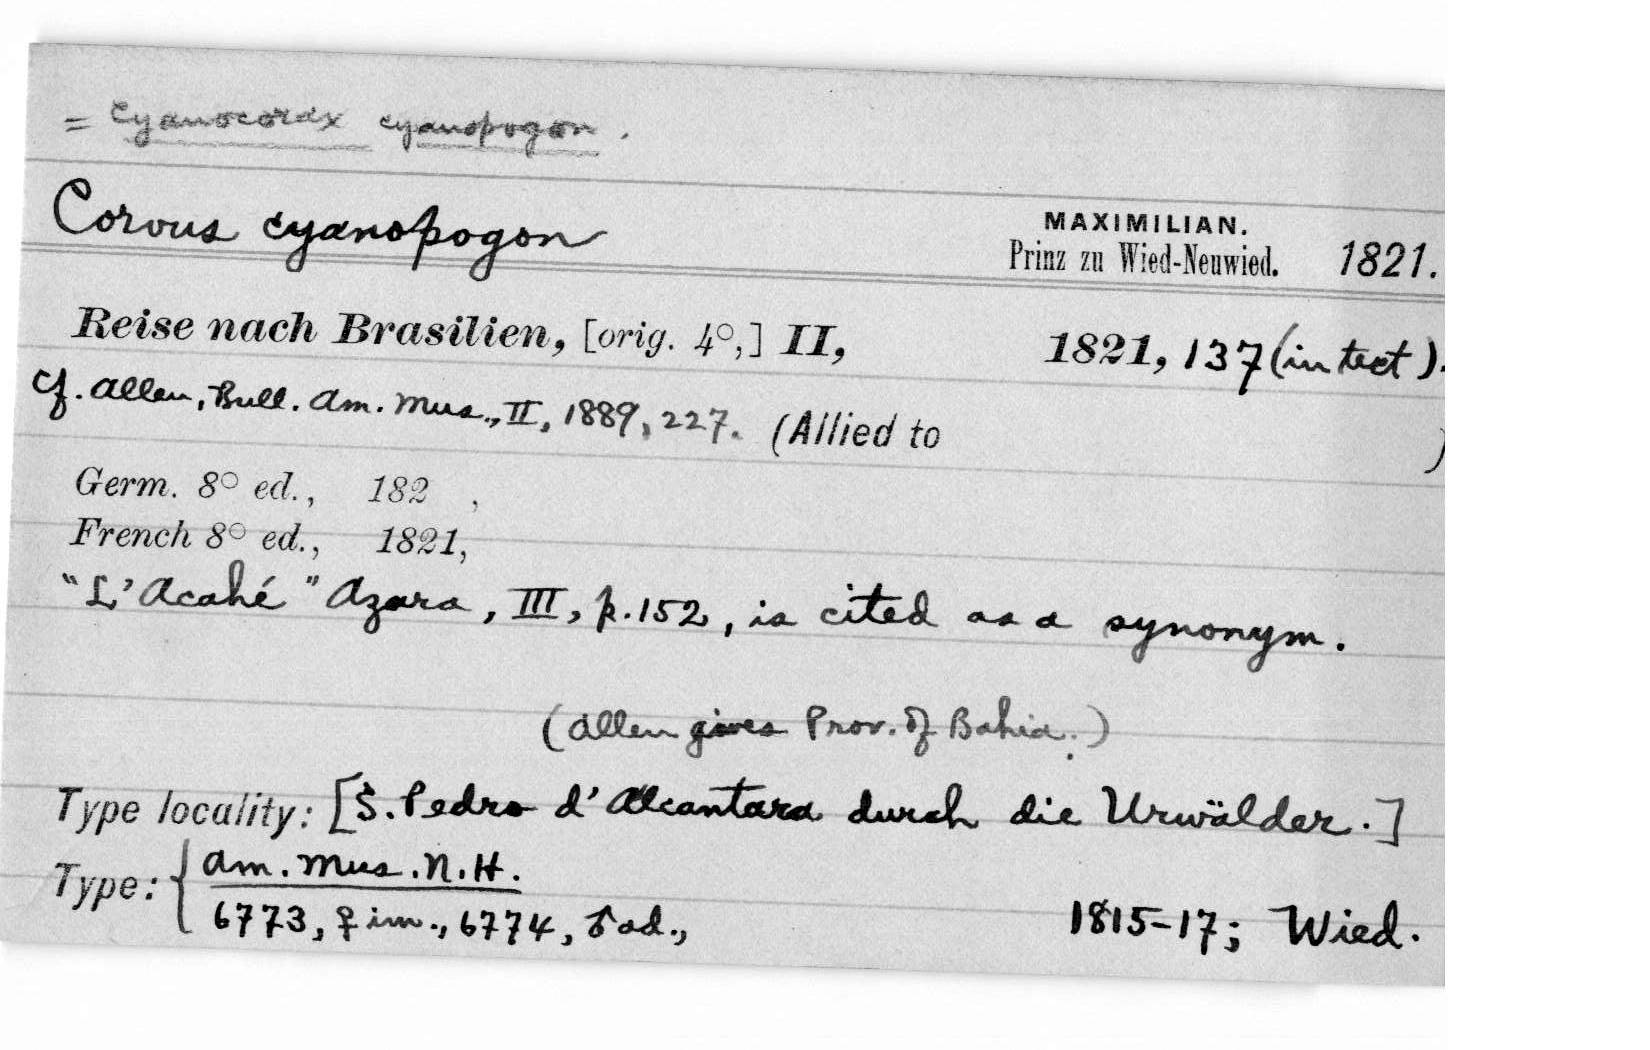 = Cyanocorax cyanopogon.
Corvus cyanopogon MAXIMILIAN.
Prinz zu Wied-Neuwied. 1821.
Reise nach Brasilien, [orig. 4°,] II, 1821, 137 (in text).
Cf. Allen, Bull. Am. Mus., II, 1889, 227. (Allied to )
Germ. 8° ed., 182 ,
French 8° ed., 1821,
"L'Acahé" Azara, III, p. 152, is cited as a synonym.
(Allen gives Prov. of Bahia.)
Type locality: [S. Pedro d'Alcantara durch die Urwälder.]
Type: { Am. Mus. N. H.
6773, ♀ im., 6774, ♂ ad., 1815-17; Wied.